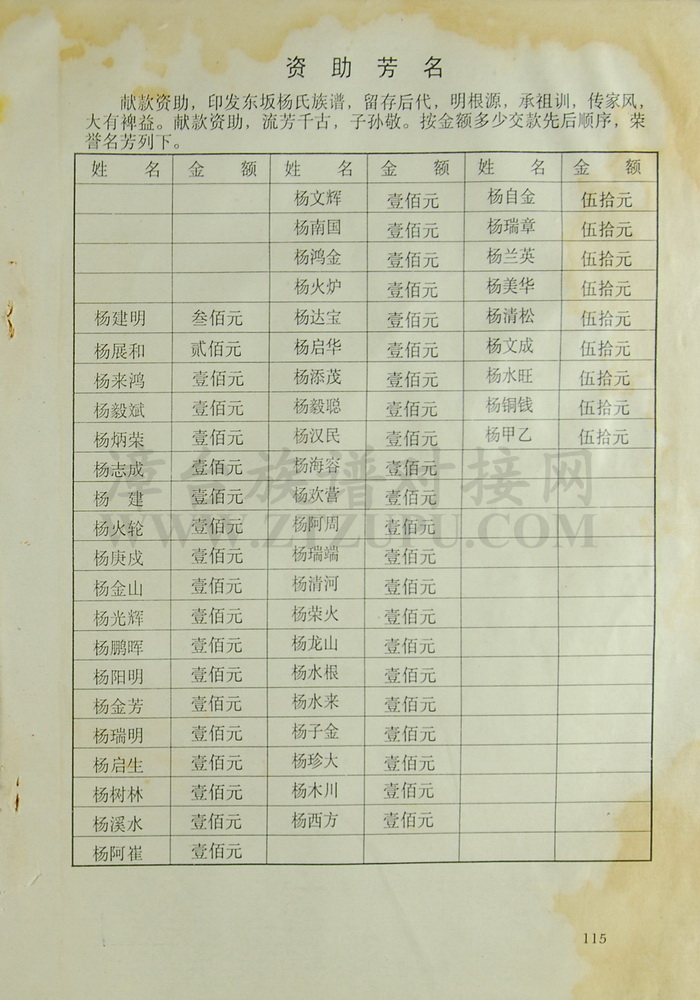 资助芳名
献款资助，印发东坂杨氏族谱，留存后代，明根源，承祖训，传家风，
大有裨益。献款资助，流芳千古，子孙敬。按金额多少交款先后顺序，荣
誉名芳列下。
姓 名 金 额 姓 名 金 额 姓 名 金 额
杨文辉 壹佰元 杨自金 伍拾元
杨南国 壹佰元 杨瑞章 伍拾元
杨鸿金 壹佰元 杨兰英 伍拾元
杨火炉 壹佰元 杨美华 伍拾元
杨建明 叁佰元 杨达宝 壹佰元 杨清松 伍拾元
杨展和 贰佰元 杨启华 壹佰元 杨文成 伍拾元
杨来鸿 壹佰元 杨添茂 壹佰元 杨水旺 伍拾元
杨毅斌 壹佰元 杨毅聪 壹佰元 杨铜钱 伍拾元
杨炳荣 壹佰元 杨汉民 壹佰元 杨甲乙 伍拾元
杨志成 壹佰元 杨海容 壹佰元
杨 建 壹佰元 杨欢营 壹佰元
杨火轮 壹佰元 杨阿周 壹佰元
杨庚戍 壹佰元 杨瑞端 壹佰元
杨金山 壹佰元 杨清河 壹佰元
杨光辉 壹佰元 杨荣火 壹佰元
杨鹏晖 壹佰元 杨龙山 壹佰元
杨阳明 壹佰元 杨水根 壹佰元
杨金芳 壹佰元 杨水来 壹佰元
杨瑞明 壹佰元 杨子金 壹佰元
杨启生 壹佰元 杨珍大 壹佰元
杨树林 壹佰元 杨木川 壹佰元
杨溪水 壹佰元 杨西方 壹佰元
杨阿崔 壹佰元
漳台族谱对接网
WWW.ZTZUPU.COM
115